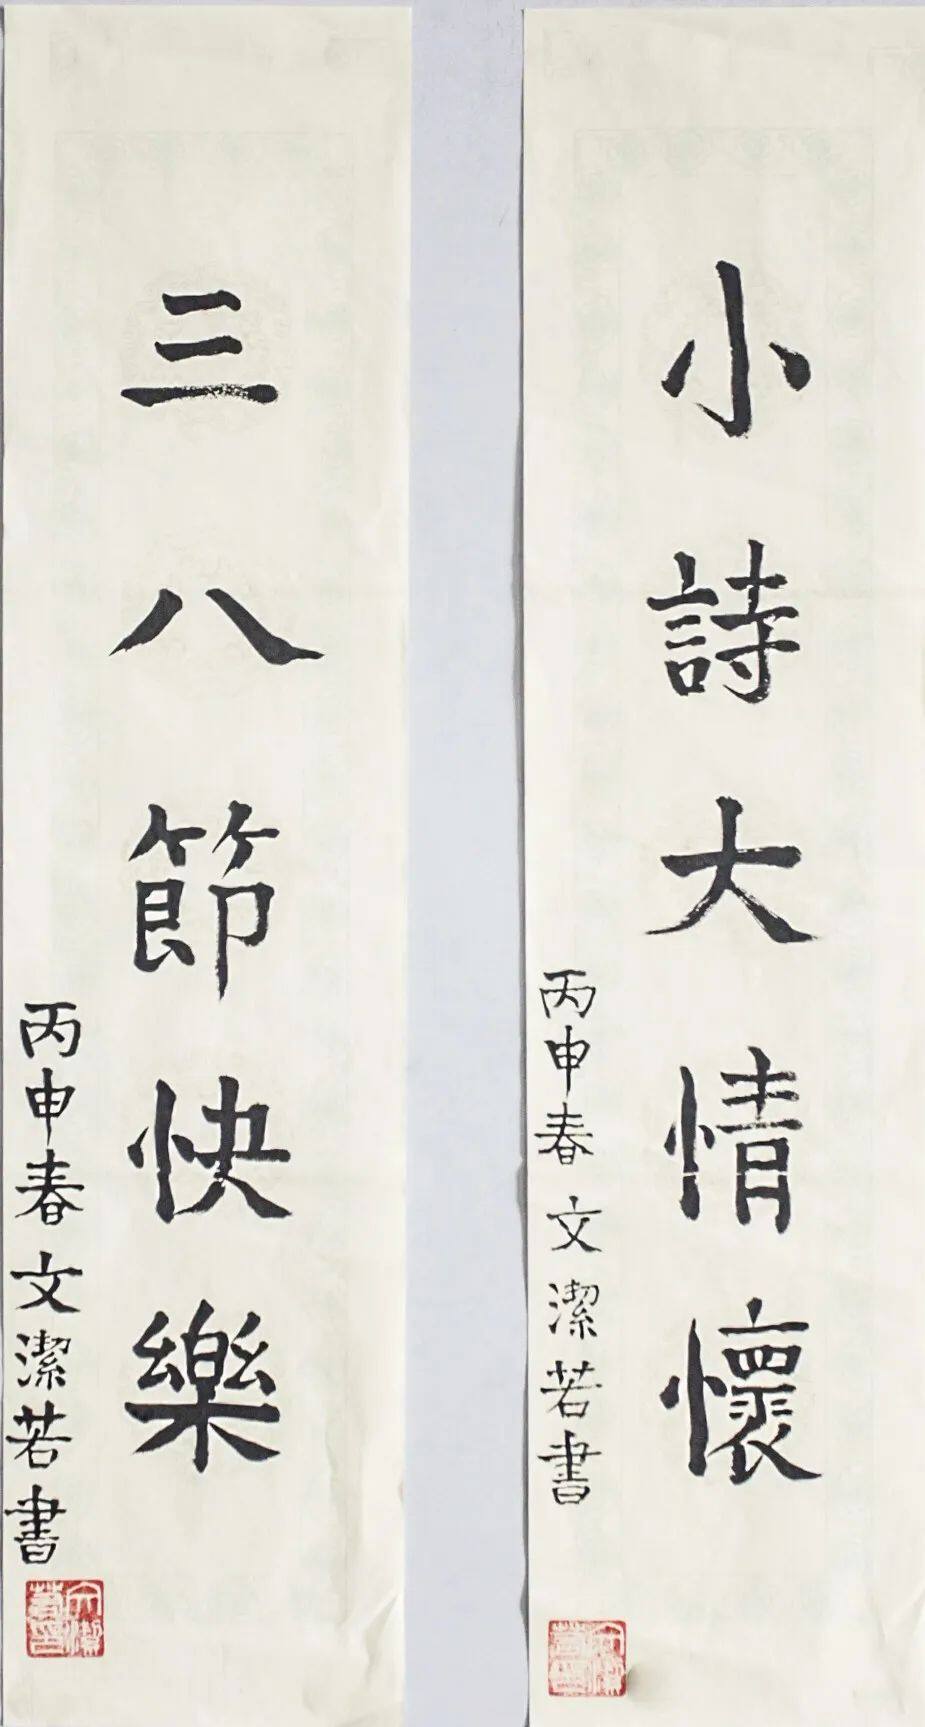 小詩大情懷
丙申春 文潔若書
三八節快樂
丙申春 文潔若書